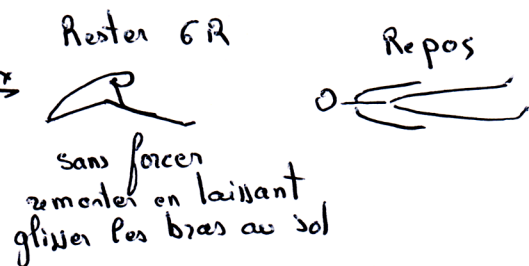 Rester 6R
Repos
sans forcer
remonter en laissant
glisser les bras au sol